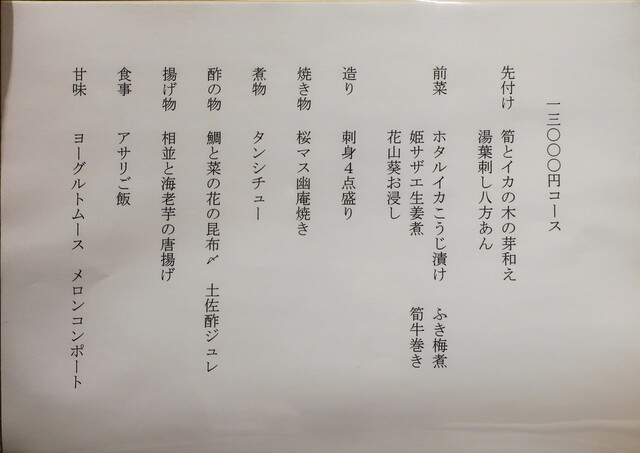 一三〇〇〇円コース
先付け 筍とイカの木の芽和え
湯葉刺し八方あん
前菜 ホタルイカこうじ漬け ふき梅煮
姫サザエ生姜煮 筍牛巻き
花山葵お浸し
造り 刺身4点盛り
焼き物 桜マス幽庵焼き
煮物 タンシチュー
酢の物 鯛と菜の花の昆布〆 土佐酢ジュレ
揚げ物 相並と海老芋の唐揚げ
食事 アサリご飯
甘味 ヨーグルトムース メロンコンポート